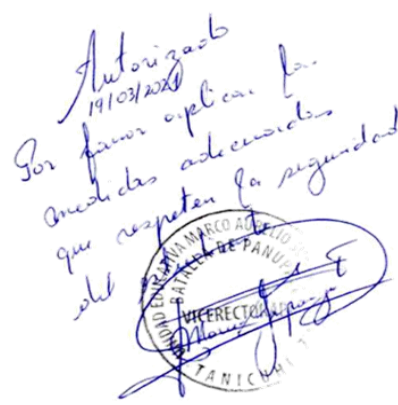 Autorizado
19/03/2021
Por favor aplicar las
medidas adecuadas
que respeten la seguridad
del
UNIDAD EDUCATIVA MARCO AURELIO
BATALLA DE PANUP
VICERECTOR
TANICUCHI